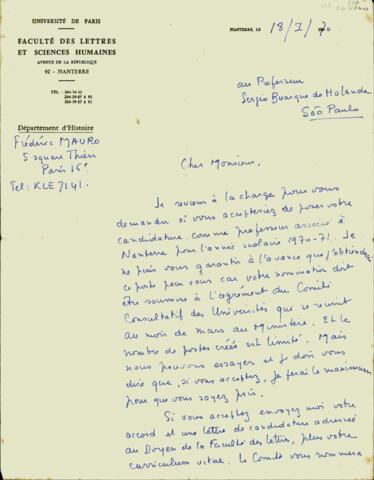 UNIVERSITÉ DE PARIS
FACULTÉ DES LETTRES
ET SCIENCES HUMAINES
AVENUE DE LA RÉPUBLIQUE
92 - NANTERRE
TÉL :
Département d'Histoire
Frédéric MAURO
5 square Thiers
Paris 16e
Tel: KLE 7141.
NANTERRE, LE 18/I/70
au Professeur
Sergio Buarque de Holanda
São Paulo
Cher Monsieur,
Je reviens à la charge pour vous
demander si vous accepteriez de poser votre
candidature comme professeur associé à
Nanterre pour l'année scolaire 1970-71. Je
ne puis vous garantir à l'avance que j'obtiendrai
ce poste pour vous car votre nomination doit
être soumise à l'agrément du Comité
Consultatif des Universités qui se réunit
au mois de mars au Ministère. Et le
nombre de postes créés est limité. Mais
nous pouvons essayer et je dois vous
dire que, si vous acceptez, je ferai le maximum
pour que vous soyez pris.
Si vous acceptez envoyez moi votre
accord et une lettre de candidature adressée
au Doyen de la Faculté des lettres, plus votre
curriculum vitae. Le Comité vous nommera